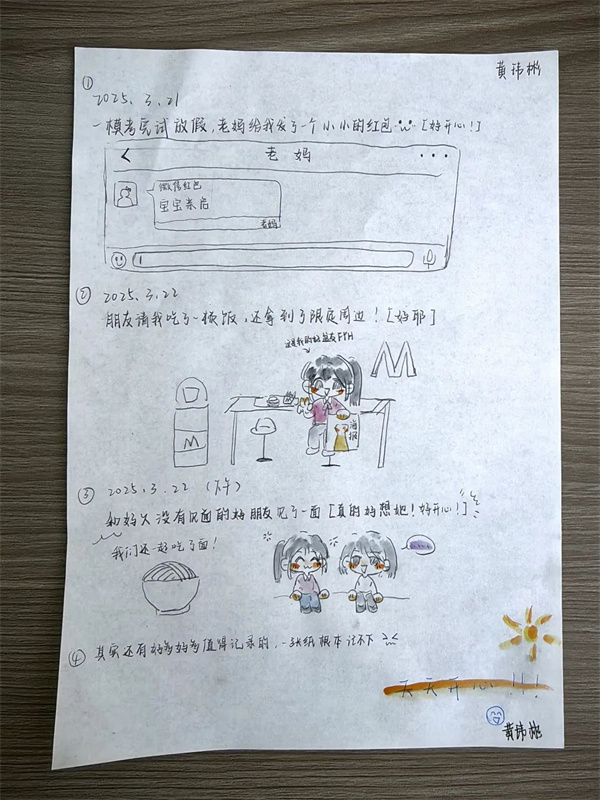 黄玮彬
① 2025.3.21
一模考完试放假,老妈给我发了一个小小的红包 [好开心!]
< 老妈 ...
微信红包
宝宝亲启
老妈
② 2025.3.22
朋友请我吃了一顿饭,还拿到了限定周边![好耶]
这是我的好盆友FYH
M
M
海报
③ 2025.3.22 (下午)
和好久没有见面的好朋友见了一面[真的好想她!好开心!]
我们还一起吃了面!
④ 其实还有好多好多值得记录的,一张纸根本记不下
天天开心!!!
黄玮彬